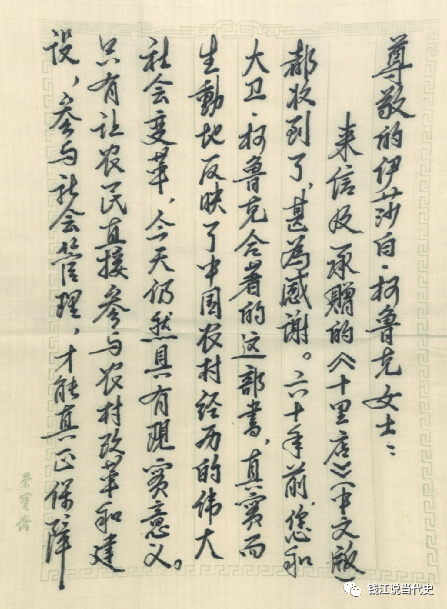 尊敬的伊莎白·柯鲁克女士：
来信及承赠的《十里店》中文版
都收到了，甚为感谢。六十年前，您和
大卫·柯鲁克合著的这部书，真实而
生動地反映了中国农村经历的伟大
社会变革，今天仍然具有现实意义。
只有让农民直接参与农村改革和建
设，参与社会管理，才能真正保障
荣宝斋
钱江说当代史